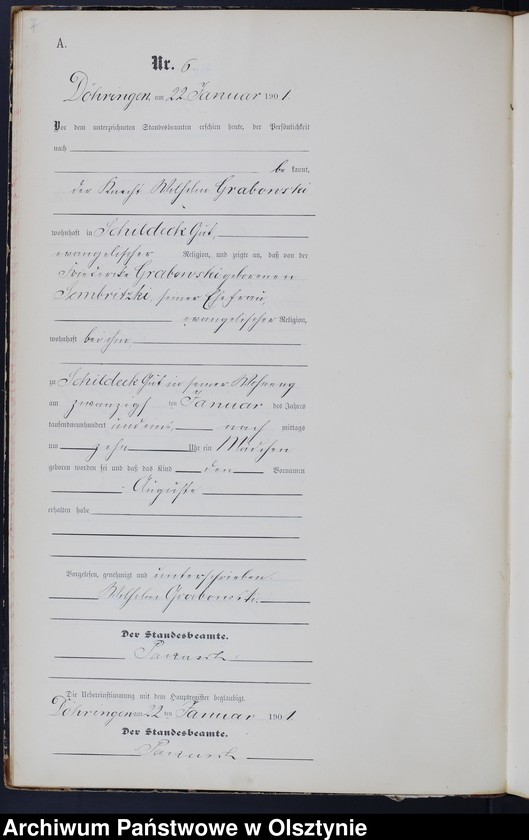 7
A.
Nr. 6
Döhringen, am 22 Januar 1901.
Vor dem unterzeichneten Standesbeamten erschien heute, der Persönlichkeit
nach
be kannt,
der Knecht Wilhelm Grabowski
wohnhaft in Schildeck Gut,
evangelischer Religion, und zeigte an, daß von der
Grabowski geborenen
Sembritzki, seiner Ehefrau,
evangelischer Religion,
wohnhaft bei ihm
zu Schildeck Gut in seiner Wohnung
am zwanzigsten Januar des Jahres
tausendneunhundert und eins, nach mittags
um zehn Uhr ein Mädchen
geboren worden sei und daß das Kind den Vornamen
Auguste
erhalten habe
Vorgelesen, genehmigt und unterschrieben
Wilhelm Grabowski.
Der Standesbeamte.
Die Uebereinstimmung mit dem Hauptregister beglaubigt.
Döhringen am 22 ten Januar 1901
Der Standesbeamte.
Archiwum Państwowe w Olsztynie